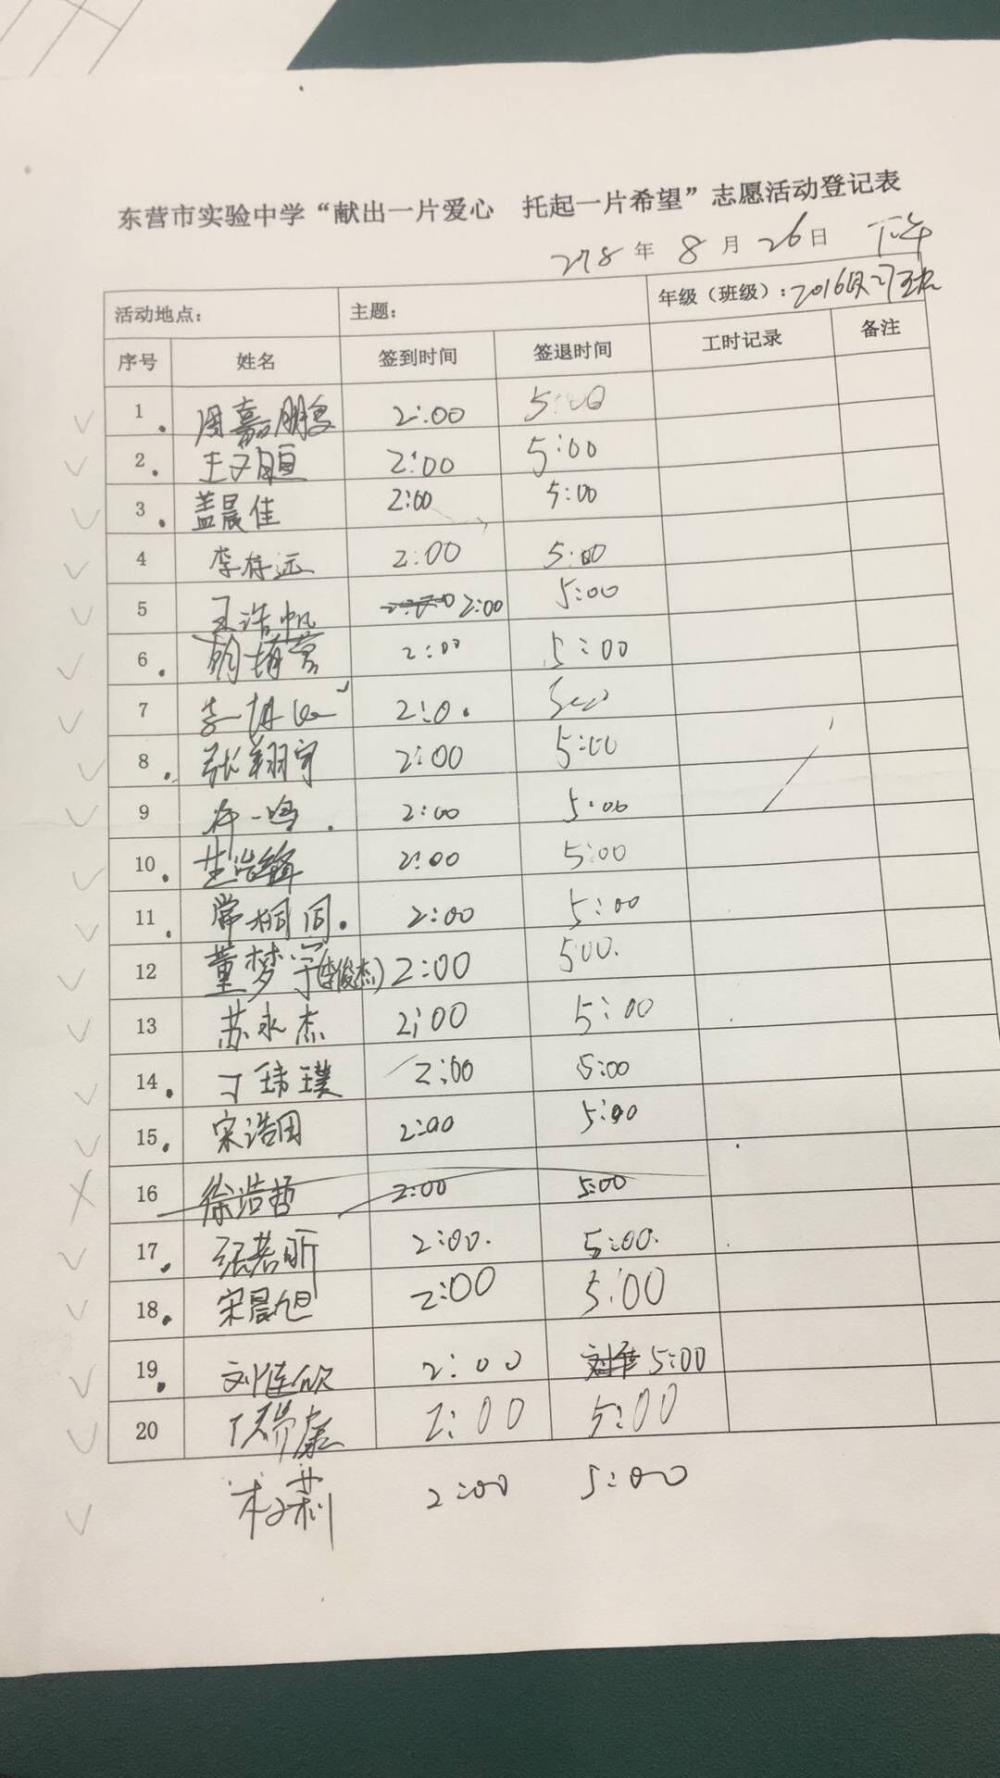 东营市实验中学“献出一片爱心 托起一片希望”志愿活动登记表
278年8月26日 下午
活动地点: 主题: 年级（班级）: 2016级27班
序号 姓名 签到时间 签退时间 工时记录 备注
1 周嘉鹏 2:00 5:00
2 2:00 5:00
3 盖晨佳 2:00 5:00
4 李存远 2:00 5:00
5 王浩帆 2:00 5:00
6 2:00 5:00
7 2:0. 5:00
8 张翔宇 2:00 5:00
9 一鸣 2:00 5:00
10 2:00 5:00
11 常桐同 2:00 5:00
12 董梦宇(李俊杰) 2:00 500.
13 苏永杰 2:00 5:00
14 丁玮璞 2:00 5:00
15 宋浩田 2:00 5:00
16 徐浩哲 2:00 5:00
17 张若昕 2:00. 5:00.
18 宋晨旭 2:00 5:00
19 刘佳欣 2:00 5:00
20 2:00 5:00
2:00 5:00